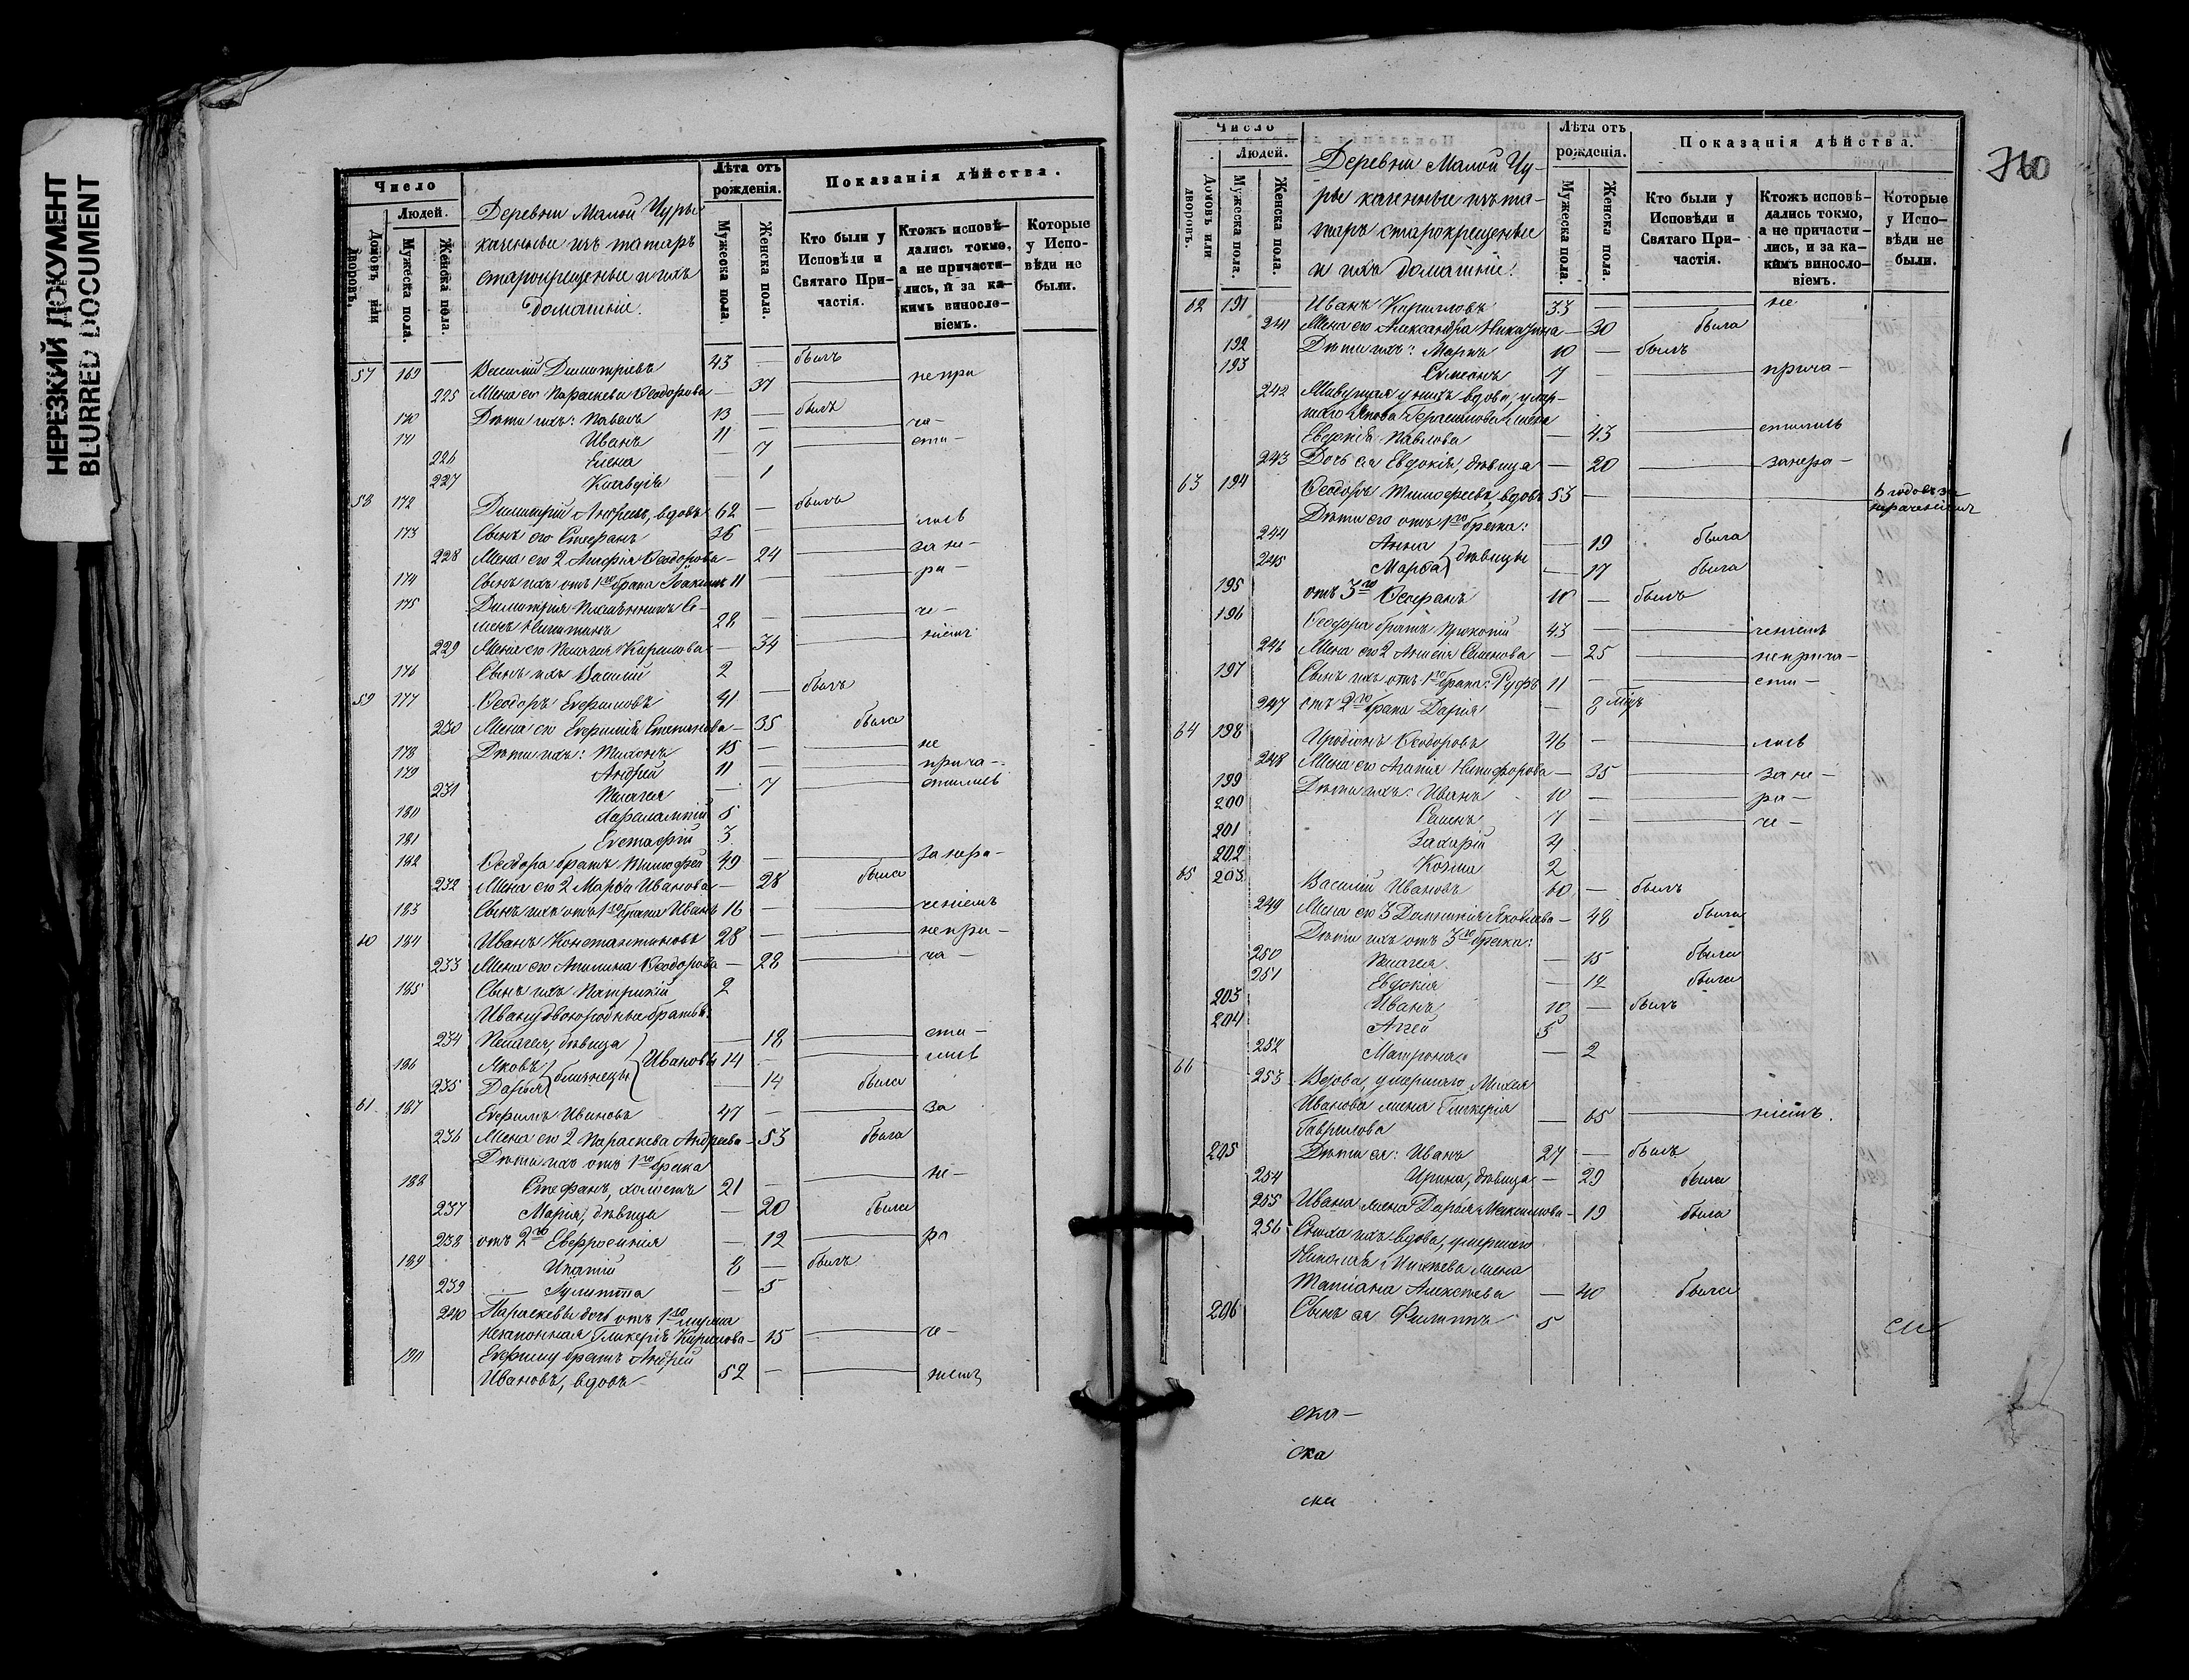 НЕРЕЗКИЙ ДОКУМЕНТ
BLURRED DOCUMENT
Число
Людей.
Домовъ или дворовъ.
Мужеска пола.
Женска пола.
Деревни Малой Чуры
казенные изъ татаръ
старокрещеные и ихъ
домашніе.
Лѣта отъ рожденія.
Мужеска пола.
Женска пола.
Показанія дѣйства.
Кто были у Исповѣди и Святаго Причастія.
Ктожъ исповѣдались токмо, а не причастились, и за какимъ винословіемъ.
Которые у Исповѣди не были.
57 169 — Василій Димитріевъ 43 — былъ
225 Жена его Параскева Ѳеодорова — 37 — непри
170 Дѣти ихъ: Павелъ 13 — былъ
171 Иванъ 11 — — ча—
226 Елена — 7 — сти—
227 Клавдія — 1
58 172 Димитрій Андреевъ, вдовъ 62 — былъ
173 Сынъ его Стефанъ 36 — лись
228 Жена его 2 Ѳеодорова — 24 — за не—
174 Сынъ ихъ отъ 1го брака Іоакимъ 11 — — ра—
175 Димитрія племянникъ Се—
менъ Никитинъ 28 — — че—
229 Жена его Пелагія Кирилова — 34 — ніемъ
176 Сынъ ихъ Василій 2
59 177 Ѳеодоръ Ефимовъ 41 — былъ
230 Жена его Евфимія Степанова — 35 была
178 Дѣти ихъ: Тихонъ 15 — — не
179 Андрей 11 — — прича—
231 Пелагея — 7 — стились
180 Харалампій 5
181 Евстафій 3
182 Ѳеодора братъ Тимофей 49 — — за нера—
232 Жена его 2 Марѳа Иванова — 28 была
183 Сынъ ихъ отъ 1го брака Иванъ 16 — — ченіемъ
60 184 Иванъ Константиновъ 28 — — непри—
233 Жена его Акилина Ѳеодорова — 28 — ча—
185 Сынъ ихъ Патрикій 2
Ивану двоюродные братья:
234 Пелагея, дѣвица — 18 — сти—
186 Яковъ } близнецы } Ивановы 14 — — лись
235 Дарья — 14 была
61 187 Ефимъ Ивановъ 47 — — за
236 Жена его 2 Параскева Андреева — 53 была
Дѣти ихъ отъ 1го брака
188 Стефанъ, холостъ 21 — — не—
237 Марія, дѣвица — 20 была
238 отъ 2го Евфросинія — 12 — ра
189 Ипатій 8 — былъ
239 Іулитта — 5
240 Параскевы дочь отъ 1го мужа
незаконная Гликерія Кирилова — 15 — че—
190 Ефиму братъ Андрей
Ивановъ, вдовъ 52 — — ніемъ
760
Число
Людей.
Домовъ или дворовъ.
Мужеска пола.
Женска пола.
Деревни Малой Чу—
ры казенные изъ та—
таръ старокрещеные
и ихъ домашніе.
Лѣта отъ рожденія.
Мужеска пола.
Женска пола.
Показанія дѣйства.
Кто были у Исповѣди и Святаго Причастія.
Ктожъ исповѣдались токмо, а не причастились, и за какимъ винословіемъ.
Которые у Исповѣди не были.
62 191 Иванъ Кирилловъ 33 — — не
241 Жена его Александра — 30 была
192 Дѣти ихъ: 10 — былъ
193 Симеонъ 7 — — прича—
242 Живущая у нихъ вдова, умер—
шаго Герасимова жена
Евдокія Павлова — 43 — стились
243 Дочь ея Евдокія, дѣвица — 20 — за нера—
63 194 Ѳеодоръ Тимофеевъ, вдовъ 53 — — 6 годовъ за нераченіемъ
Дѣти его отъ 1го брака:
244 Анна } дѣвицы — 19 была
245 Марѳа — 17 была
195 отъ 3го 10 — былъ
196 Ѳеодора братъ Прокопій 43 — — ченіемъ
246 Жена его 2 Семенова — 25 — неприча—
197 Сынъ ихъ отъ 1го брака: Руфъ 11 — — сти—
247 отъ 2го брака Дарія — 8 мѣц
64 198 Иродіонъ Ѳеодоровъ 46 — — лись
248 Жена его Агапія Никифорова — 35 — за не—
199 Дѣти ихъ: Иванъ 10 — — ра—
200 7 — — че—
201 Захарій 4
202 Козма 2
65 203 Василій Ивановъ 60 — былъ
249 Жена его 3 Домникія Яковлева — 48 была
Дѣти ихъ отъ 3го брака:
250 Пелагея — 15 была
251 Евдокія — 12 была
203 Иванъ 10 — былъ
204 Аггей 5
252 Матрона — 2
66 253 Вдова, умершаго
Иванова жена Гликерія
Гаврилова — 65 — ніемъ.
205 Дѣти ея: Иванъ 27 — былъ
254 Ирина, дѣвица — 29 была
255 Ивана жена Дарья Максимова — 19 была
256 Сноха ихъ вдова, умершаго
Николая жена
Татіана Алексѣева — 40 была
206 Сынъ ея Филиппъ 5
ска—
ска
ска